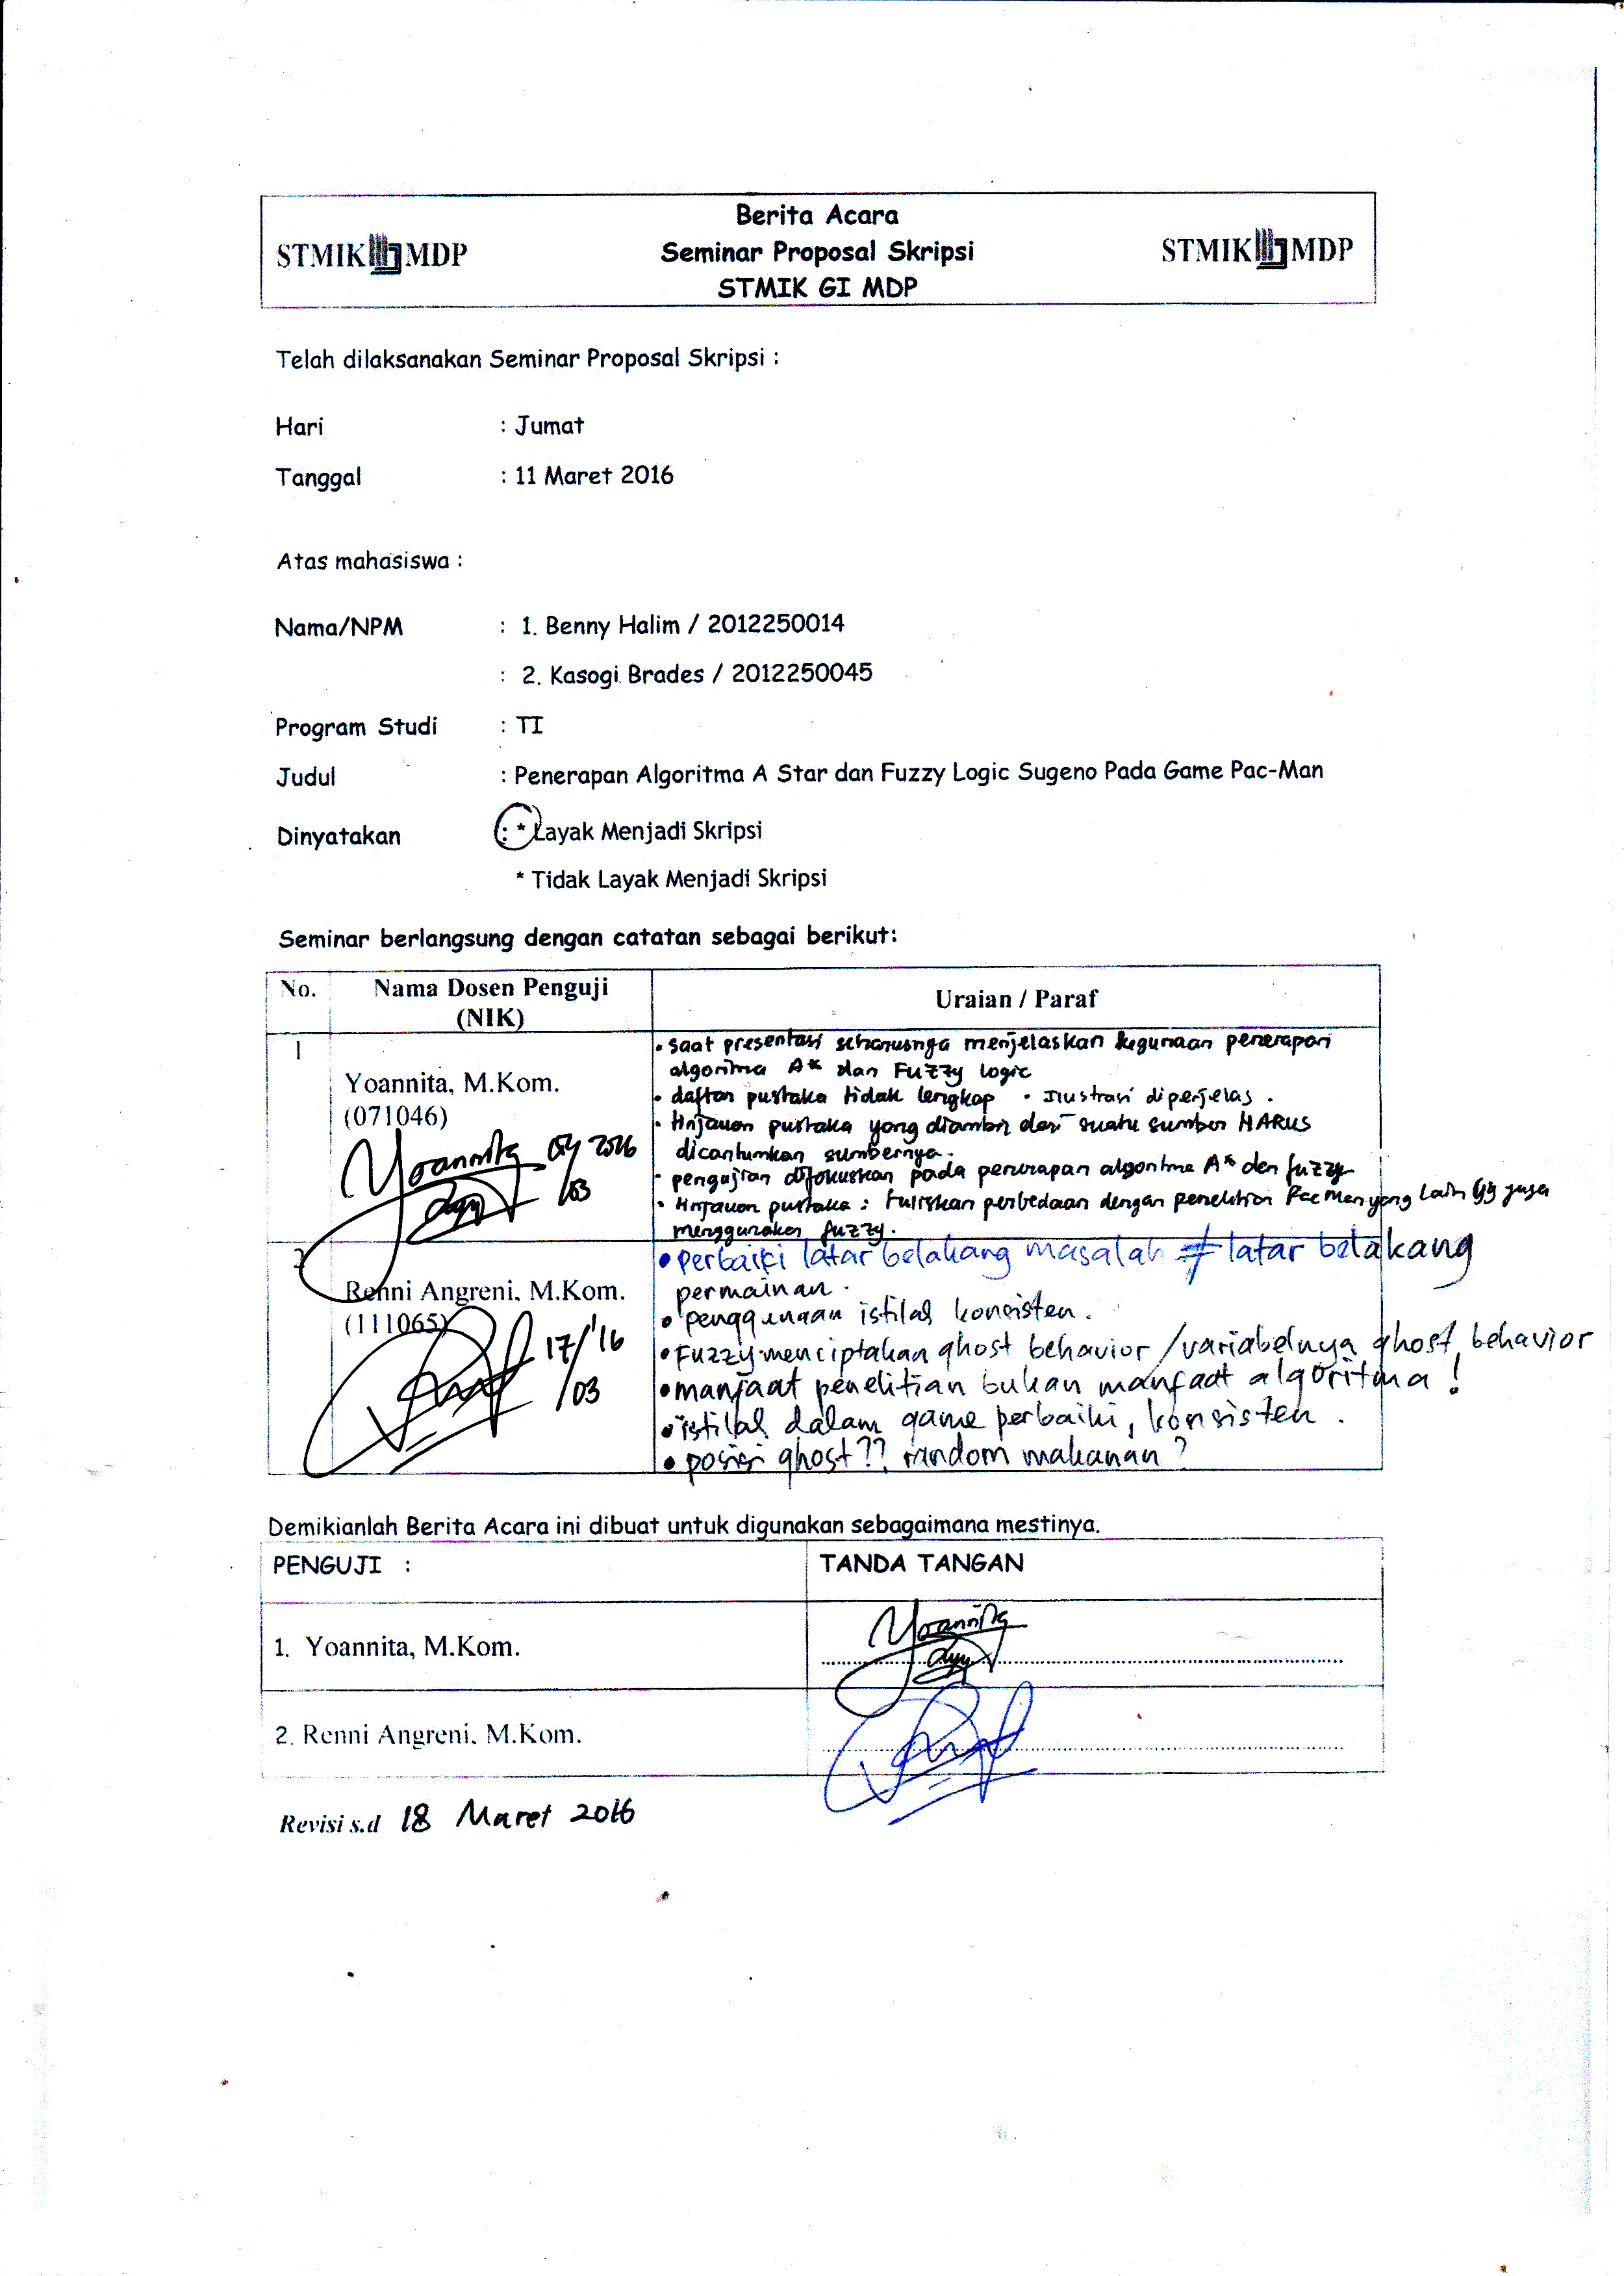 Berita Acara
STMIK MDP Seminar Proposal Skripsi STMIK MDP
STMIK GI MDP
Telah dilaksanakan Seminar Proposal Skripsi :
Hari : Jumat
Tanggal : 11 Maret 2016
Atas mahasiswa :
Nama/NPM : 1. Benny Halim / 2012250014
: 2. Kasogi Brades / 2012250045
Program Studi : TI
Judul : Penerapan Algoritma A Star dan Fuzzy Logic Sugeno Pada Game Pac-Man
Dinyatakan : * Layak Menjadi Skripsi
* Tidak Layak Menjadi Skripsi
Seminar berlangsung dengan catatan sebagai berikut:
No. Nama Dosen Penguji (NIK) Uraian / Paraf
1
Yoannita, M.Kom.
(071046)
Yoannita 2016
/03
• saat presentasi seharusnya menjelaskan kegunaan penerapan
algoritma A* dan Fuzzy logic
• daftar pustaka tidak lengkap • Ilustrasi diperjelas .
• tinjauan pustaka yang diambil dari suatu sumber HARUS
dicantumkan sumbernya.
• pengujian difokuskan pada penerapan algoritma A* dan fuzzy
• tinjauan pustaka : tuliskan perbedaan dengan penelitian Pac Man yang lain yg juga
menggunakan fuzzy.
2
Renni Angreni, M.Kom.
(111065)
17/'16
/03
• perbaiki latar belakang masalah ≠ latar belakang
permainan .
• penggunaan istilah konsisten .
• Fuzzy menciptakan ghost behavior / variabelnya ghost behavior
• manfaat penelitian bukan manfaat algoritma !
• istilah dalam game perbaiki, konsisten .
• posisi ghost ?? random makanan ?
Demikianlah Berita Acara ini dibuat untuk digunakan sebagaimana mestinya.
PENGUJI : TANDA TANGAN
1. Yoannita, M.Kom. Yoannita
2. Renni Angreni, M.Kom.
Revisi s.d 18 Maret 2016